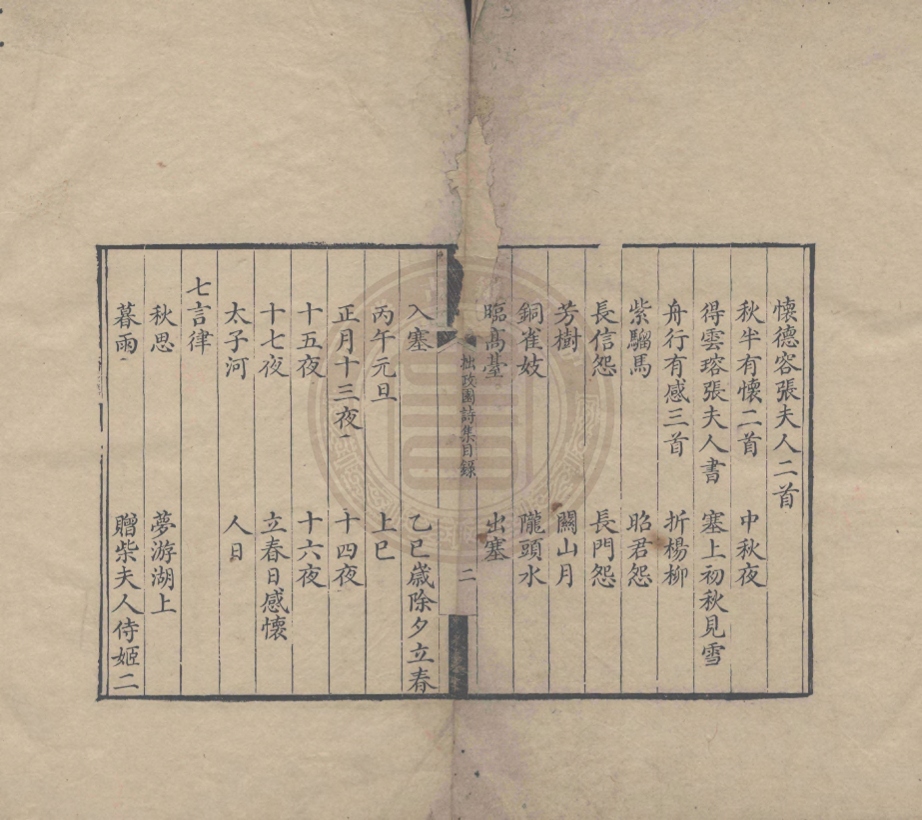 懷德容張夫人二首
秋半有懷二首　中秋夜
得雲瑢張夫人書　塞上初秋見雪
舟行有感三首　折楊柳
紫騮馬　昭君怨
長信怨　長門怨
芳樹　關山月
銅雀妓　隴頭水
臨高臺　出塞
拙政園詩集目錄　二
入塞　乙巳歲除夕立春
丙午元旦　上巳
正月十三夜　十四夜
十五夜　十六夜
十七夜　立春日感懷
太子河　人日
七言律
秋思　夢游湖上
暮雨　贈柴夫人侍姬二